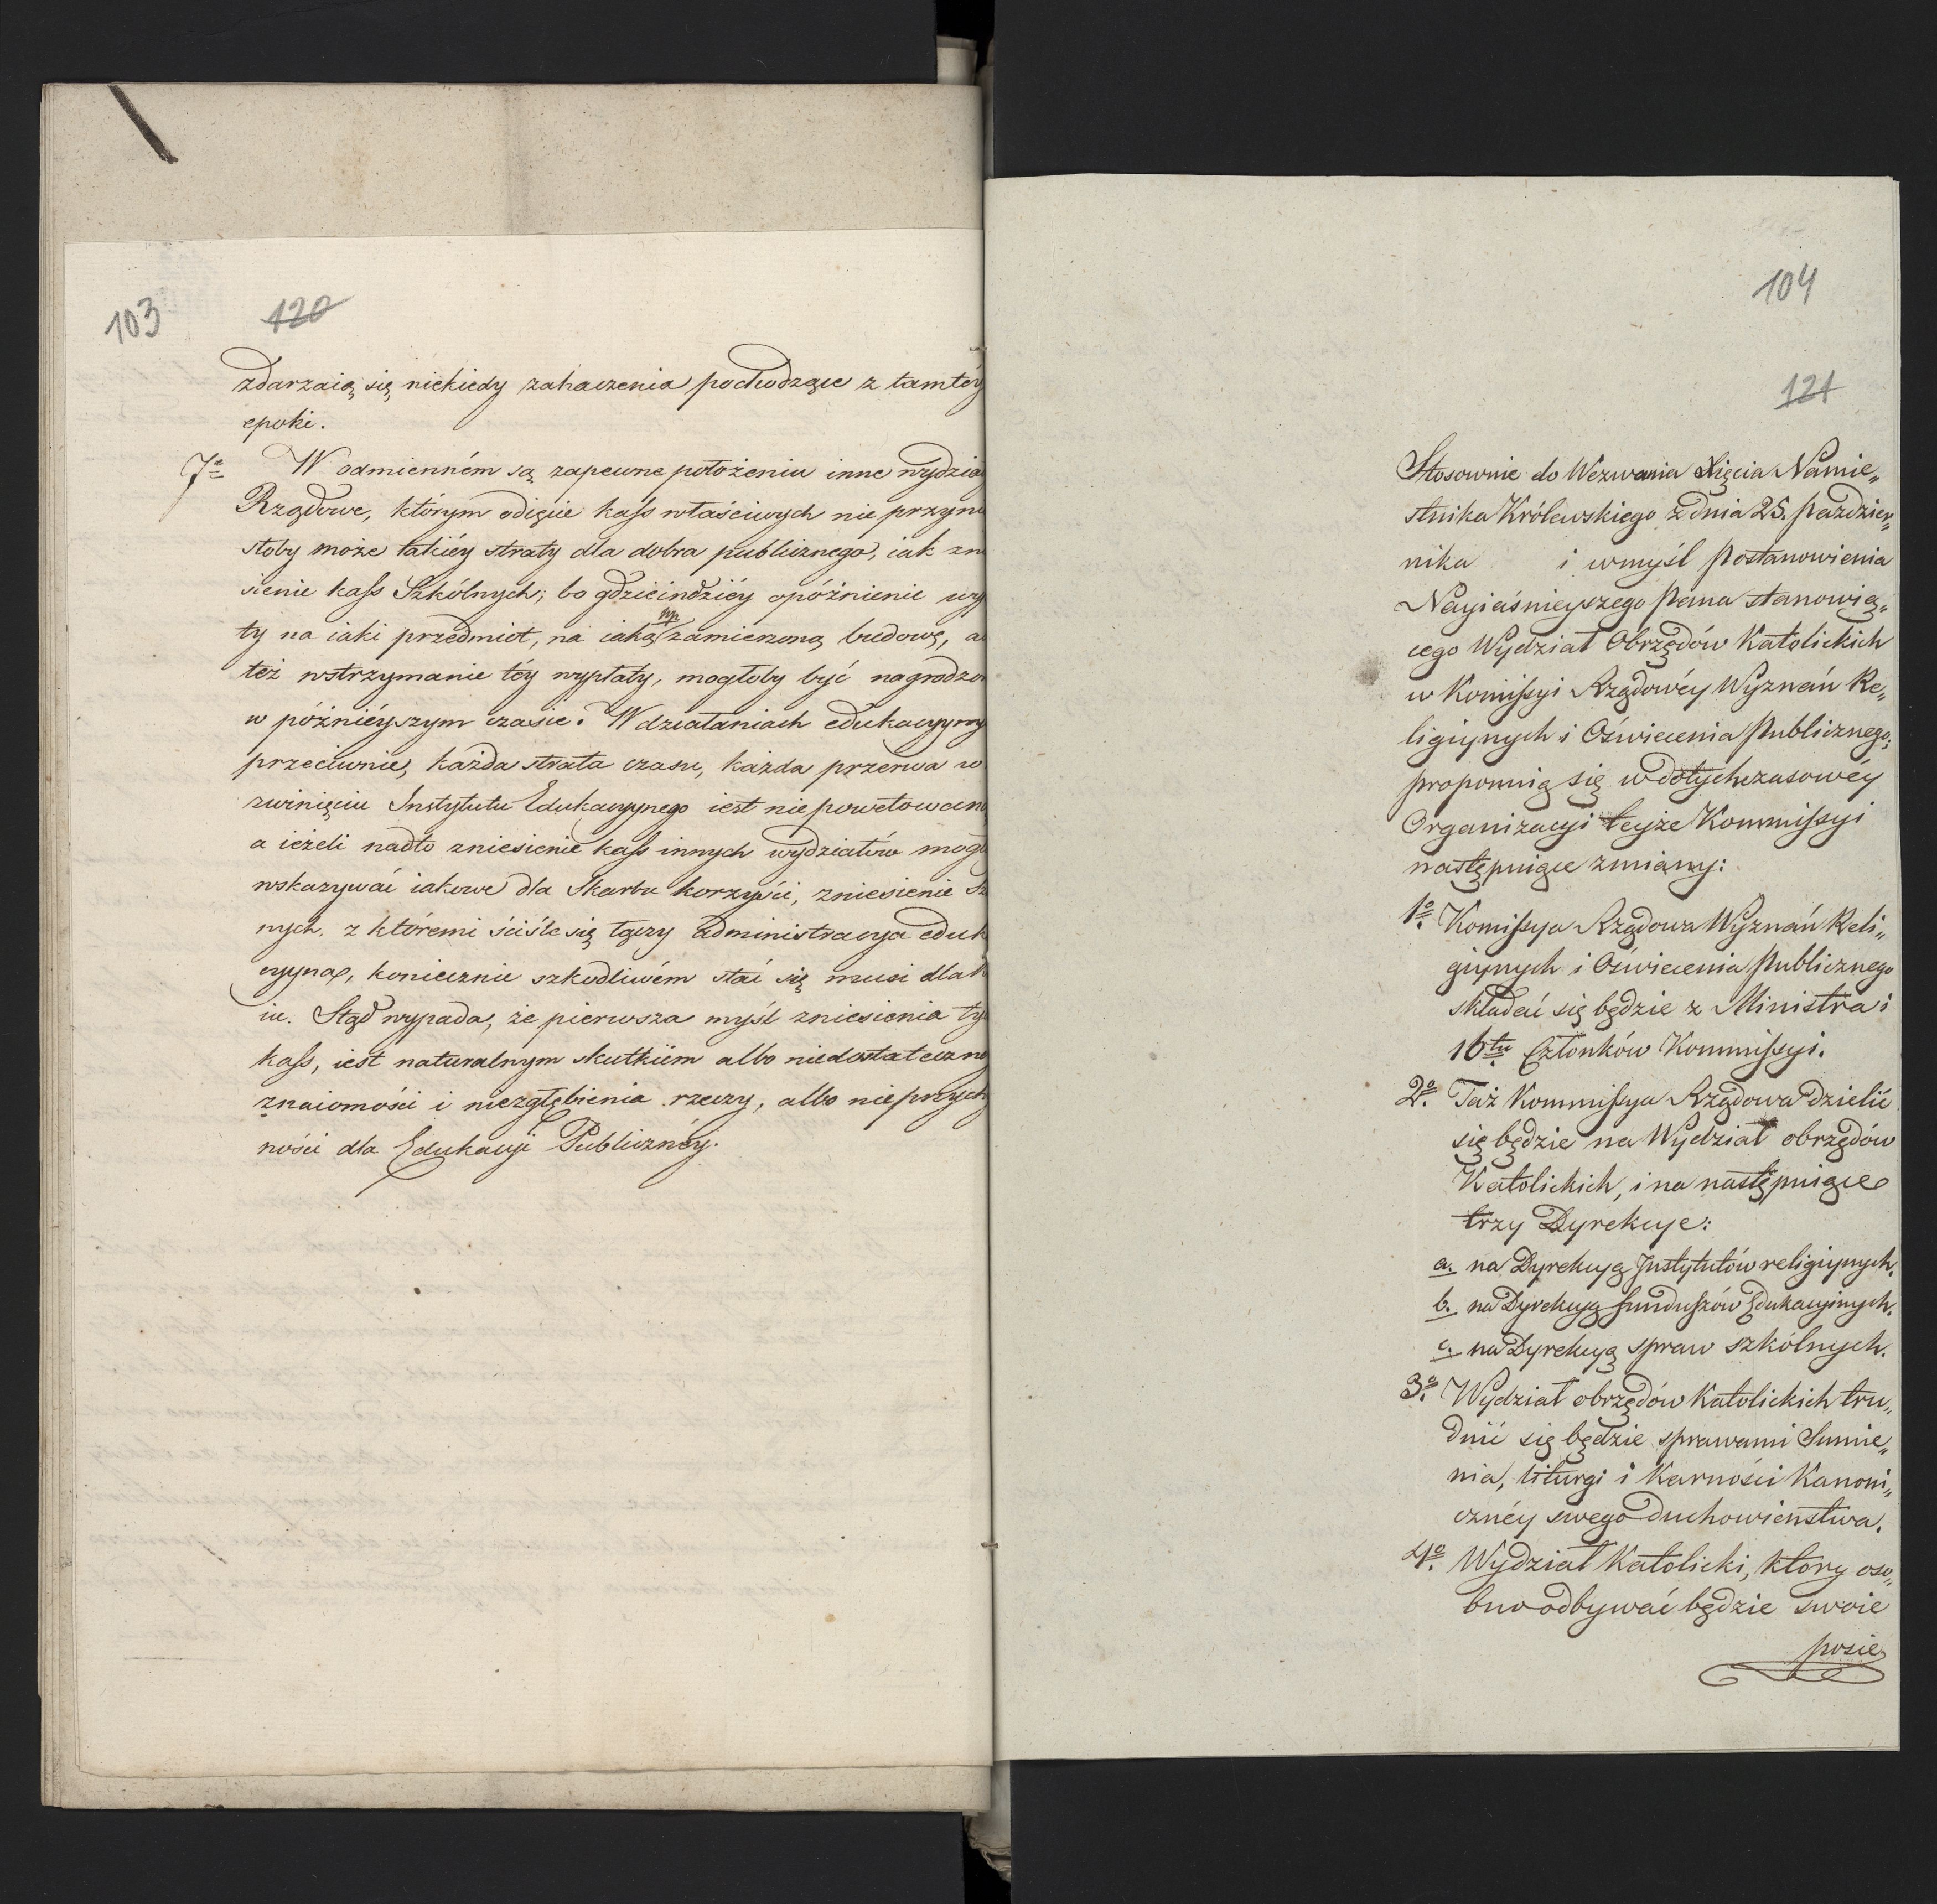 103 120
zdarzaią się niekiedy zahaczenia pochodzące z tamtéy
epoki.
7º W odmienném są zapewne położeniu inne wydzia
Rządowe, którym odięcie kass właściwych nie przyn
słoby może takiéy straty dla dobra publicznego, iak zn
sienie kass Szkólnych; bo gdzieindziéy opóźnienie wy
ty na iaki przedmiot, na iaką np zamierzoną budowę, a
też wstrzymanie téy wypłaty, mogłoby być nagrodzo
w późniéyszym czasie. W działaniach edukacyyny
przeciwnie, każda strata czasu, każda przerwa w
zwinięciu Instytutu Edukacyynego iest niepowetowan
a ieżeli nadto zniesienie kass innych wydziałów mog
wskazywać iakowe dla Skarbu korzyści, zniesienie S
nych, z któremi ściśle się łączy administracya eduk
cyyna, koniecznie szkodliwém stać się musi dla
iu. Stąd wypada, że pierwsza myśl zniesienia ty
kass, iest naturalnym skutkiém albo niedostateczne
znaiomości i niezgłębienia rzeczy, albo nieprzych
ności dla Edukacyi Publicznéy.
104
121
Stosownie do Wezwania Xięcia Namie„
stnika Królewskiego z dnia 25. Paździer„
nika i wmyśl Postanowienia
Nayiaśnieyszego Pana stanowią„
cego Wydział Obrzędów Katolickich
w Komissyi Rządowéy Wyznań Re„
ligiynych i Oświecenia Publicznego;
proponuią się w dotychczasowéy
Organizacyi teyże Kommissyi
następuiące zmiany:
1º Komissya Rządowa Wyznań Reli„
giynych i Oświecenia Publicznego
składać się będzie z Ministra i
16tu Członków Kommissyi.
2º Taż Kommissya Rządowa dzielić
się będzie na Wydział obrzędów
Katolickich, i na następuiące
trzy Dyrekcye:
a. na Dyrekcyą Instytutów religiynych.
b. na Dyrekcyą funduszów Edukacyinych.
c. na Dyrekcyą spraw szkólnych.
3º Wydział obrzędów Katolickich tru„
dnić się będzie sprawami Sumie„
nia, liturgi i Karności Kanoni„
cznéy swego Duchowieństwa.
4º Wydział Katolicki, ktory oso„
bno odbywać będzie swoie
posie